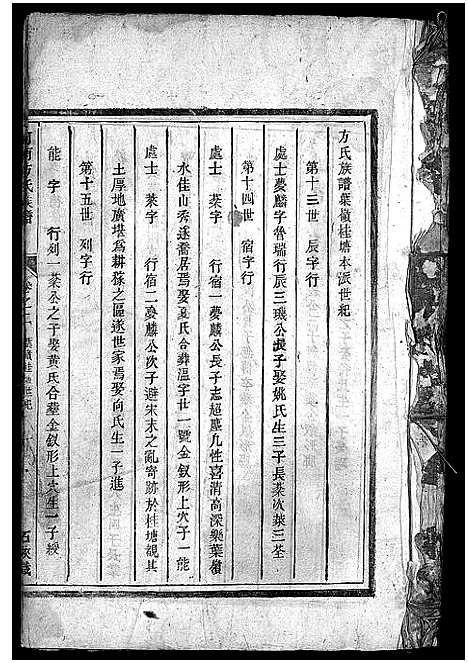 方氏族譜葉嶺桂塘本派世紀
第十三世 辰字行
處士夢麟字魯瑞行辰三璣公長子娶姚氏生三子長葉次萊三荃
第十四世 宿字行
處士 葉字 行宿一夢麟公長子志超塵几性喜清高深樂葉嶺
水佳山秀遂喬居焉娶夏氏合葬溫字廿一號金釵形上穴子一能
處士 萊字 行宿二夢麟公次子避宋末之亂寄跡於桂塘觀其
土厚地廣堪為耕稼之區遂世家焉娶向氏生一子進
第十五世 列字行
能字 行列一葉公之子娶黃氏合墓金釵形上穴生一子綬
方氏族譜 卷之二